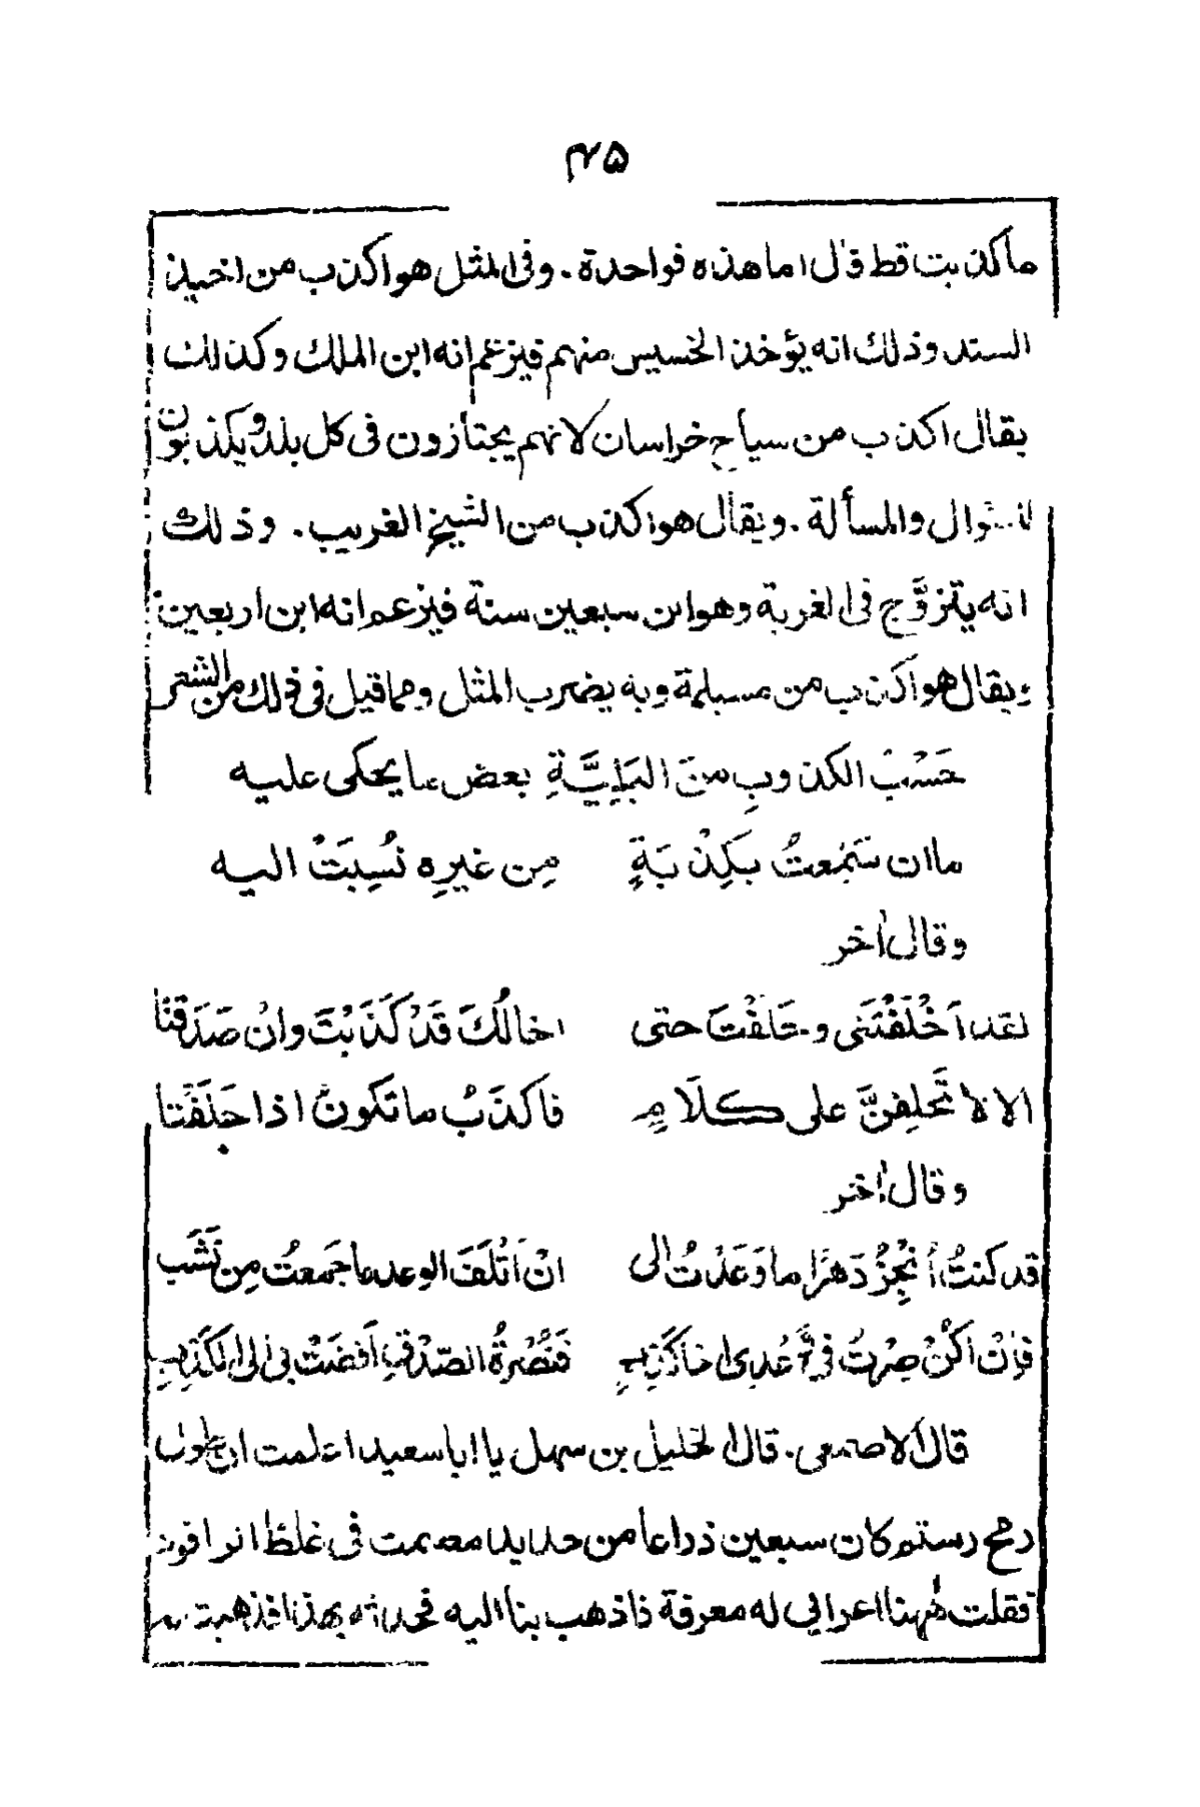 ۴۵
ما كذبت قط قال اما هذه فواحدة . وفى المثل هو اكذب من اخيذ
السند وذلك انه يؤخذ الخسيس منهم فيزعم انه ابن الملك وكذلك
يقال اكذب من سياح خراسان لانهم يجتازون فى كل بلد ويكذبون
للسؤال والمسألة . ويقال هو اكذب من الشيخ الغريب . وذلك
انه يتزوَّج فى الغربة وهو ابن سبعين سنة فيزعم انه ابن اربعين
ويقال هو اكذب من مسيلمة وبه يضرب المثل ومما قيل فى ذلك من الشعر
حَسْبُ الكذوبِ مِنَ البَلِيَّةِ بعض ما يحكى عليه
ما ان سَمِعتُ بكِذْبَةٍ مِن غيرِهِ نُسِبَتْ اليه
وقال اخر
لقد اَخْلَفْتَنى وحَلَفْتَ حتى اخالُكَ قَدْ كَذَبْتَ وانْ صَدَقتَا
الا لا تَحلِفنَّ على كلَامٍ فاكذَبُ ما تكونُ اذا حَلَفْتا
وقال اخر
قد كنتُ اُنْجِزُ دَهرًا ما وَعَدْتُ الى انْ اَتْلَفَ الوعد ما جَمعتُ مِن نَشَبِ
فاِنْ اَكُنْ صِرْتُ فى وَعْدِى اخا كَذِبٍ فَنُصْرةُ الصّدْقِ اَفضَتْ بى الى الكَذِبِ
قال الاصمعى . قال الخليل بن سهل يا ابا سعيد اعلمت ان طول
رمح رستم كان سبعين ذراعا من حديد مصمت فى غلظ الراقود
فقلت هٰهنا اعرابي له معرفة فاذهب بنا اليه فحدثه بهذا فذهبت به